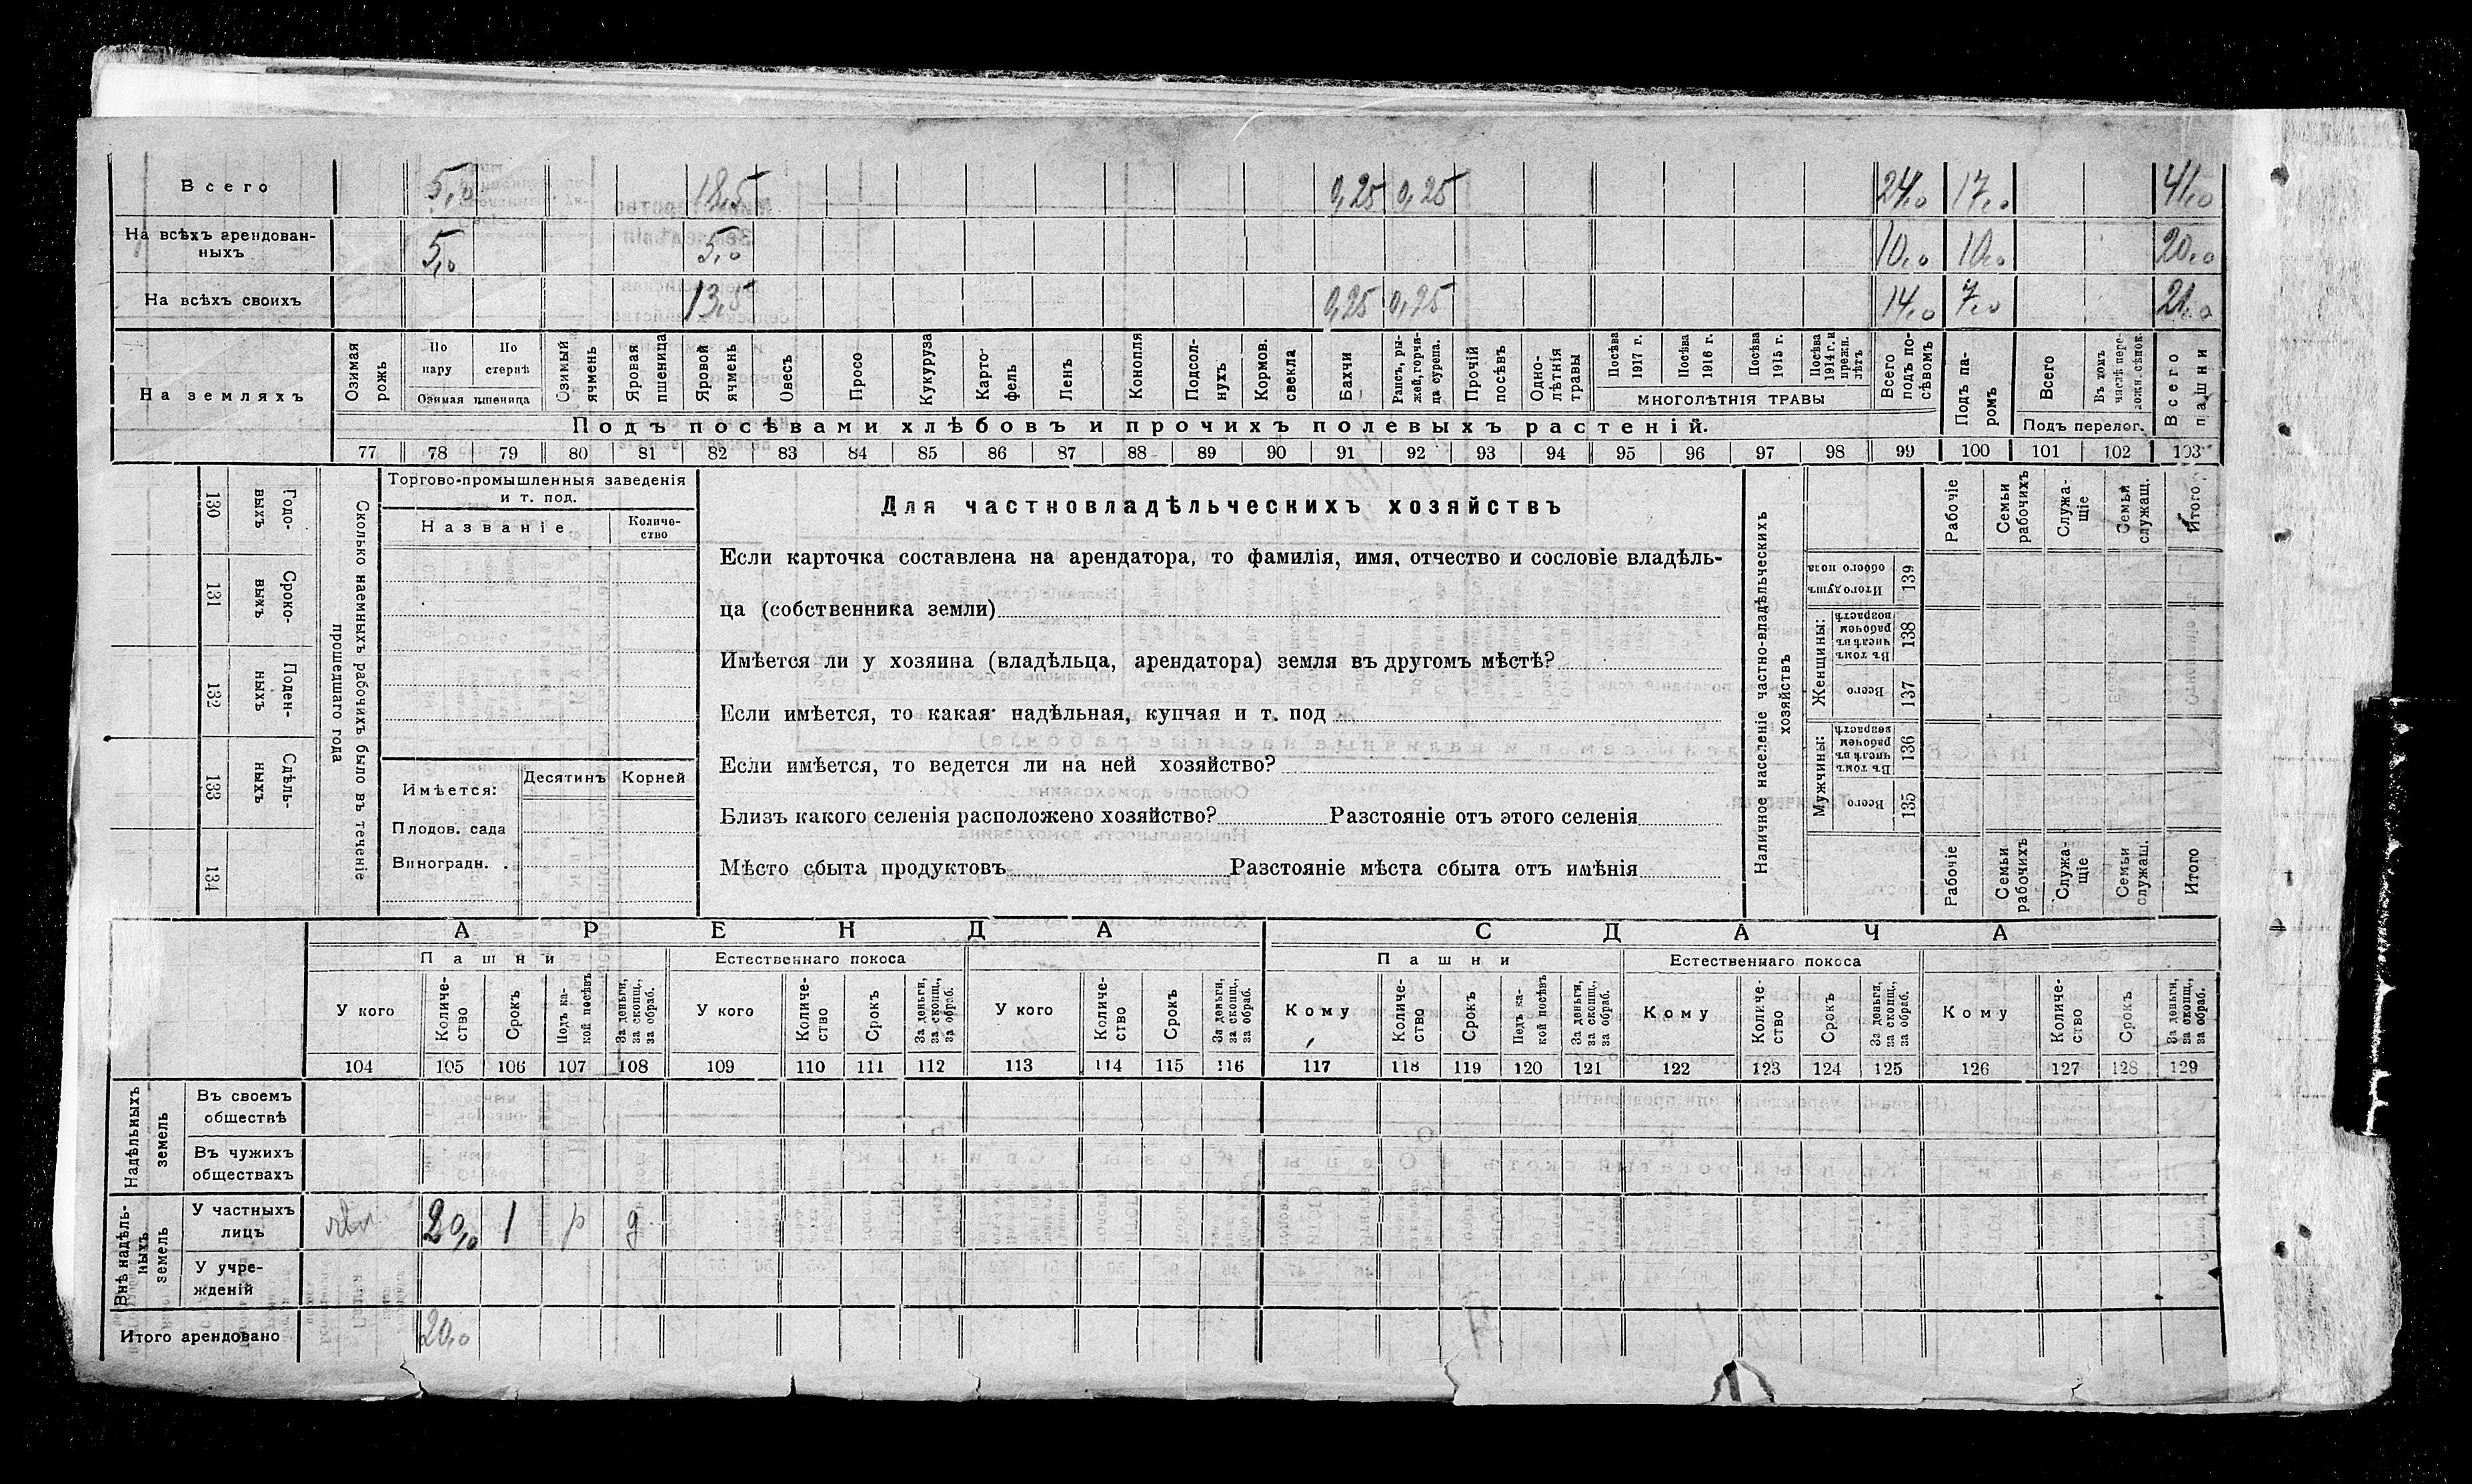 Всего 5,0 18,5 0,25 0,25 24,0 17,0 41,0
На всѣхъ арендован-
ныхъ 5,0 5,0 10,0 10,0 20,0
На всѣхъ своихъ 13,5 0,25 0,25 14,0 7,0 21,0
На земляхъ
Озимая рожь
По пару
По стернѣ
Озимая пшеница
Озимый ячмень
Яровая пшеница
Яровой ячмень
Овесъ
Просо
Кукуруза
Карто-
фель
Ленъ
Конопля
Подсол-
нухъ
Кормов. свекла
Бахчи
Рапсъ, ры-
жей, горчи-
ца сурепа.
Прочій посѣвъ
Одно-
лѣтнія травы
Посѣва 1917 г.
Посѣва 1916 г.
Посѣва 1915 г.
Посѣва 1914 г. и прежн. лѣтъ
МНОГОЛѢТНІЯ ТРАВЫ
Всего подъ по-
сѣвомъ
Подъ па-
ромъ
Всего
Въ томъ числѣ пере-
ложн. сѣнок.
Подъ перелог.
Всего пашни
Подъ посѣвами хлѣбовъ и прочихъ полевыхъ растеній.
77 78 79 80 81 82 83 84 85 86 87 88 89 90 91 92 93 94 95 96 97 98 99 100 101 102 103
130 Годо-
выхъ
131 Сроко-
выхъ
132 Поден-
ныхъ
133 Сдѣль-
ныхъ
134
Сколько наемныхъ рабочихъ было въ теченіе
прошедшаго года
Торгово-промышленныя заведенія
и т. под.
Названіе
Количе-
ство
Имѣется:
Десятинъ Корней
Плодов. сада
Виноградн. .
Для частновладѣльческихъ хозяйствъ
Если карточка составлена на арендатора, то фамилія, имя, отчество и сословіе владѣль-
ца (собственника земли)
Имѣется ли у хозяина (владѣльца, арендатора) земля въ другомъ мѣстѣ?
Если имѣется, то какая надѣльная, купчая и т. под
Если имѣется, то ведется ли на ней хозяйство?
Близъ какого селенія расположено хозяйство? Разстояніе отъ этого селенія
Мѣсто сбыта продуктовъ Разстояніе мѣста сбыта отъ имѣнія
Наличное населеніе частно-владѣльческихъ
хозяйствъ
Рабочіе
Семьи рабочихъ
Служа-
щіе
Семьи служащ.
Итого
Итого душъ обоего пола 139
Женщины:
Въ томъ числѣ въ рабочем возрастѣ 138
Всего 137
Мужчины:
Въ томъ числѣ въ рабочем возрастѣ 136
Всего 135
Рабочіе
Семьи рабочихъ
Служа-
щіе
Семьи служащ.
Итого
АРЕНДА СДАЧА
Пашни Естественнаго покоса Пашни Естественнаго покоса
У кого
Количе-
ство
Срокъ
Подъ ка-
кой посѣвъ
За деньги, за скопщ., за обраб.
У кого
Количе-
ство
Срокъ
За деньги, за скопщ., за обраб.
У кого
Количе-
ство
Срокъ
За деньги, за скопщ., за обраб.
Кому
Количе-
ство
Срокъ
Подъ ка-
кой посѣвъ
За деньги, за скопщ., за обраб.
Кому
Количе-
ство
Срокъ
За деньги, за скопщ., за обраб.
Кому
Количе-
ство
Срокъ
За деньги, за скопщ., за обраб.
104 105 106 107 108 109 110 111 112 113 114 115 116 117 118 119 120 121 122 123 124 125 126 127 128 129
Надѣльныхъ земель
Въ своемъ
обществѣ
Въ чужихъ
обществахъ
Внѣ надѣль-
ныхъ земель
У частныхъ
лицъ 20,0 1 р д
У учре-
жденій
Итого арендовано 20,0